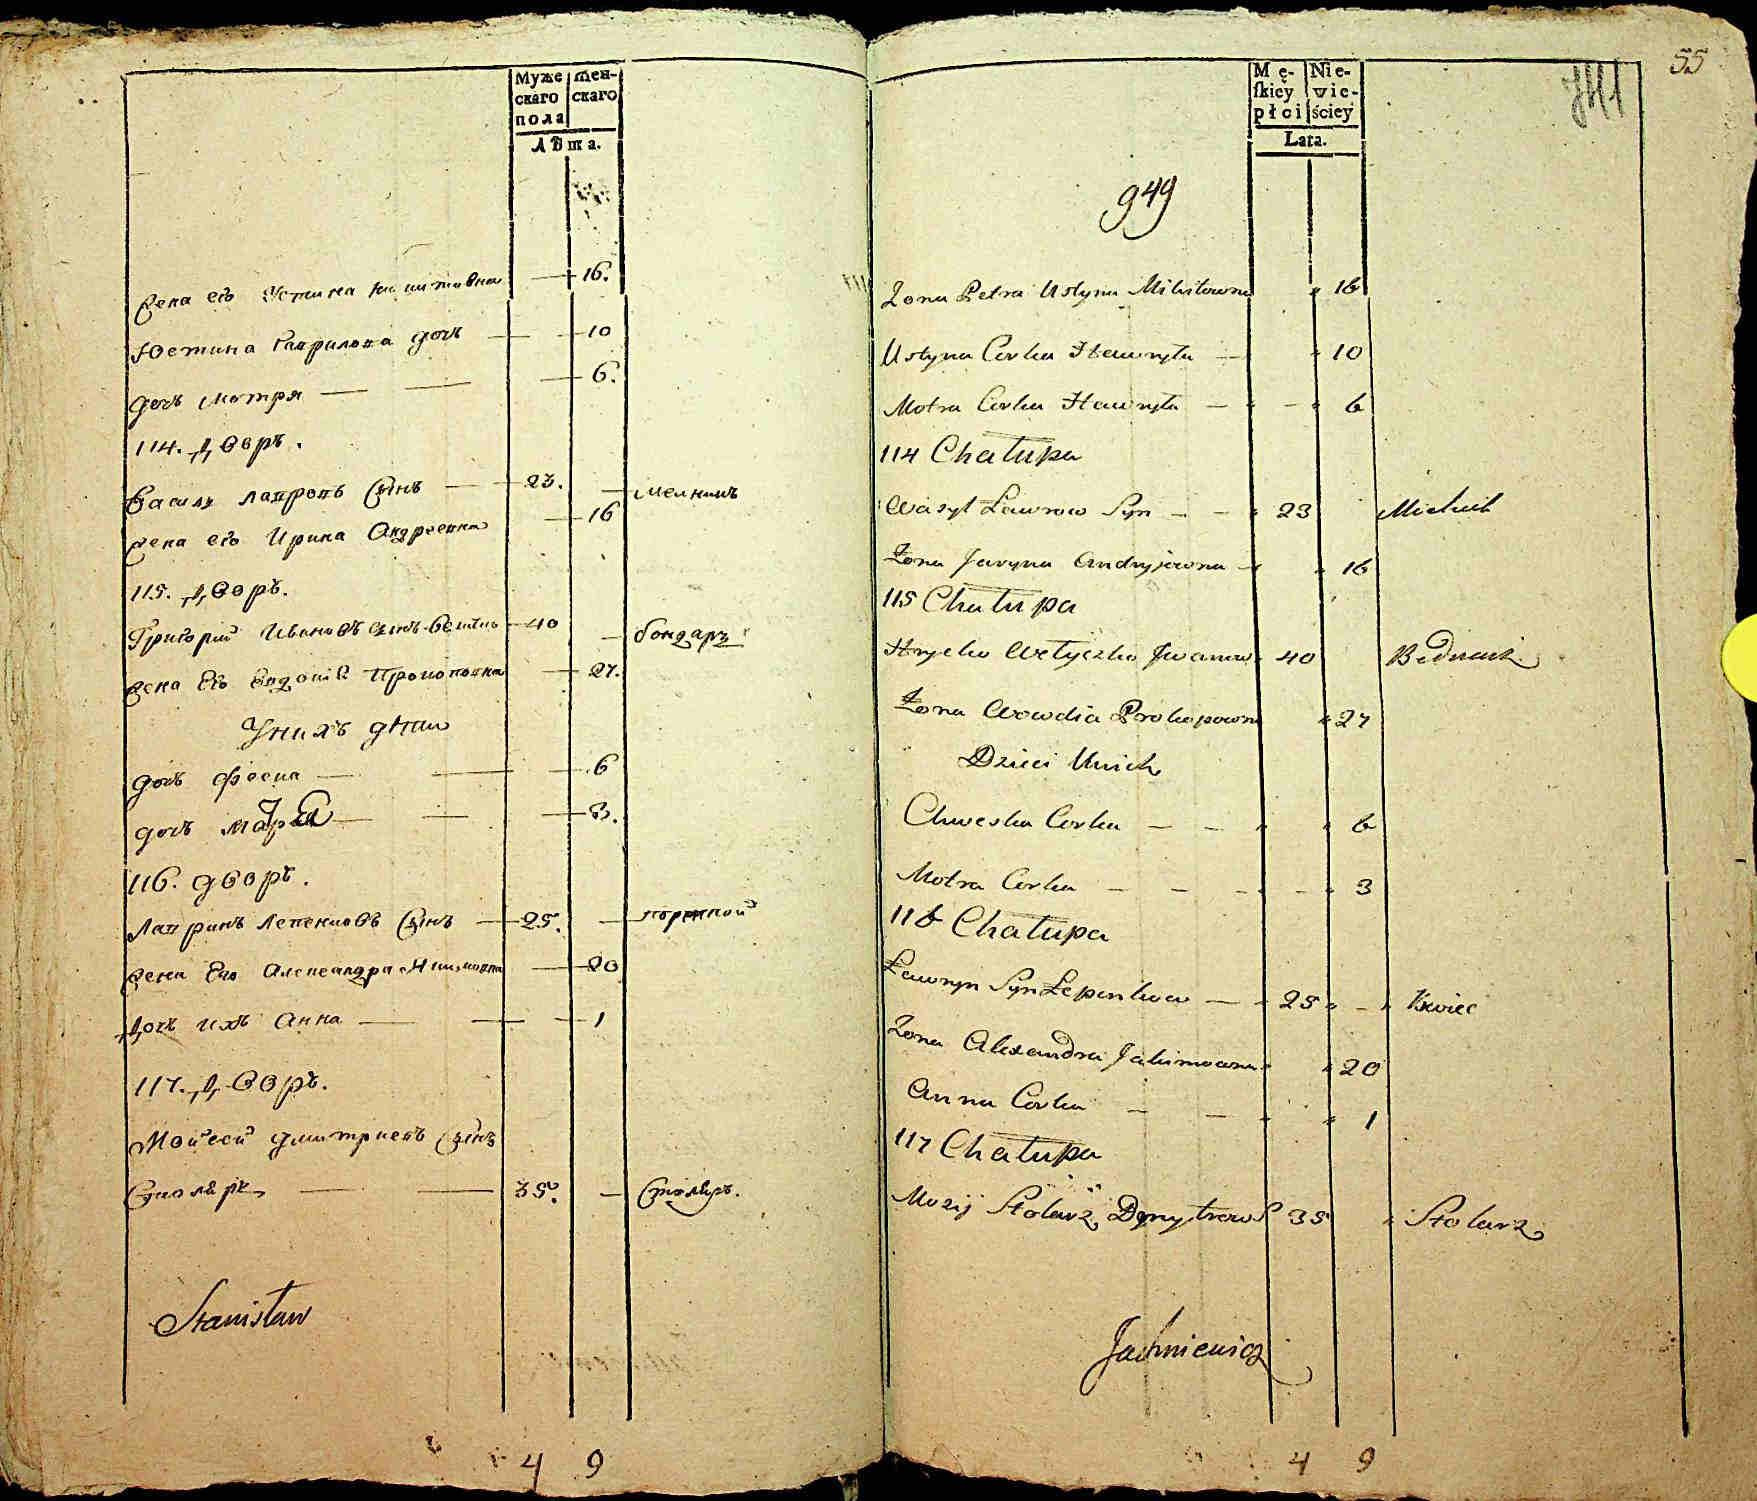 Муже
скаго
пола
Жен-
скаго
Лѣта.
Жена его Устина Никитовна — 16.
Юстина Гаврилова дочь — 10
дочь Мотря — — 6.
114. Дворъ.
Василь Лавровъ Сынъ — 23. — мелникъ
Жена его Ирина Андреевна — 16
115. Дворъ.
Григорий Ивановъ сынъ 40 — бондаръ
Жена Его Евдокия Прокоповна — 27.
У нихъ дѣти
дочь Феска — — 6
дочь — — 3.
116. дворъ.
Лавринъ Лепенковъ Сынъ — 25. —
Жена Его Александра Якимовна — 20
Дочь ихъ Анна — — 1
117. Дворъ.
Мойсей Дмитриевъ Сынъ
Столяръ — — 35. — Столяръ.
Stanisław
4 9
55
Mę-
skiey
płci
Nie-
wie-
ściey
Lata.
949
Zona Petra Ustyna Mikitowna 16
Ustyna Corka Hawryła — 10
Motra Corka Hawryła — — 6
114 Chałupa
Wasyl Ławrow Syn — — 23 Mielnik
Żona Jaryna Andryjewna — 16
115 Chałupa
Hryćko Wetyczko Iwanow 40 Bednarz
Żona Wowdia Prokopowna 27
Dzieci Unich
Chweska Corka — — 6
Motra Corka — — — — 3
116 Chałupa
Ławryn Syn Łepenkow — 25 —
Zona Alexandra Jakimowna 20
Anna Corka — — 1
117 Chałupa
Mozij Stolarz Dmytrow S 35 Stolarz
Jachniewicz
4 9